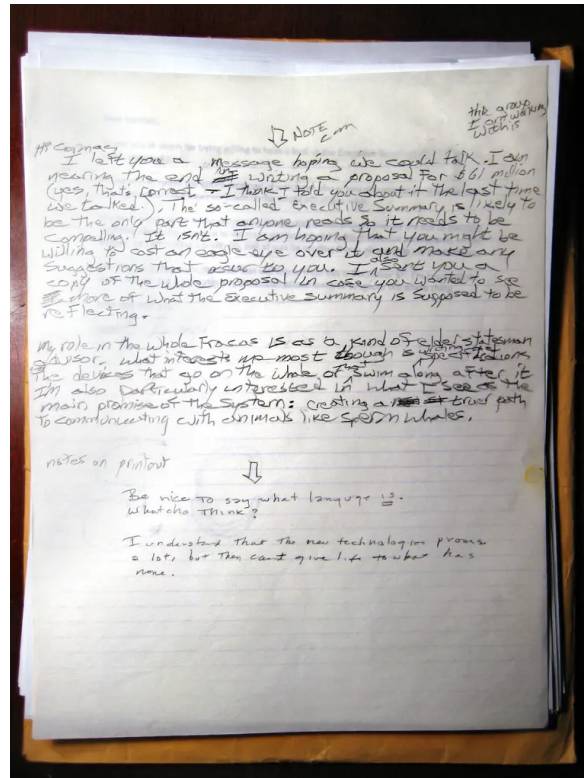 the group
I am working
with is
NOTE
Hi Cormac,
I left you a message hoping we could talk. I am
nearing the end writing a proposal for $61 million
(yes, that's correct - I think I told you about it the last time
we talked). The so-called Executive Summary is likely to
be the only part that anyone reads so it needs to be
compelling. It isn't. I am hoping that you might be
willing to cast an eagle eye over it and make any
suggestions that occur to you. I also sent you a
copy of the whole proposal in case you wanted to see
more of what the executive summary is supposed to be
reflecting.
My role in the whole fracas is as a kind of elder statesman
advisor. What interests me most though is
the devices that go on the whale or swim along after it
I'm also particularly interested in what I see as the
main promise of the system: creating a truer path
to communicating with animals like sperm whales.
notes on printout
Be nice to say what languge is.
Whatcha Think?
I understand that the new technologies promise
a lot, but they can't give life to what has
none.